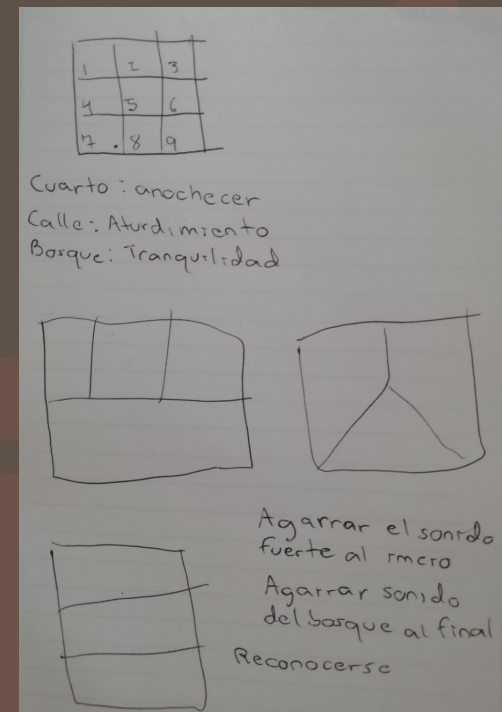 1 2 3
4 5 6
7 . 8 9
Cuarto: anochecer
Calle: Aturdimiento
Bosque: Tranquilidad
Agarrar el sonido
fuerte al inicio
Agarrar sonido
del bosque al final
Reconocerse